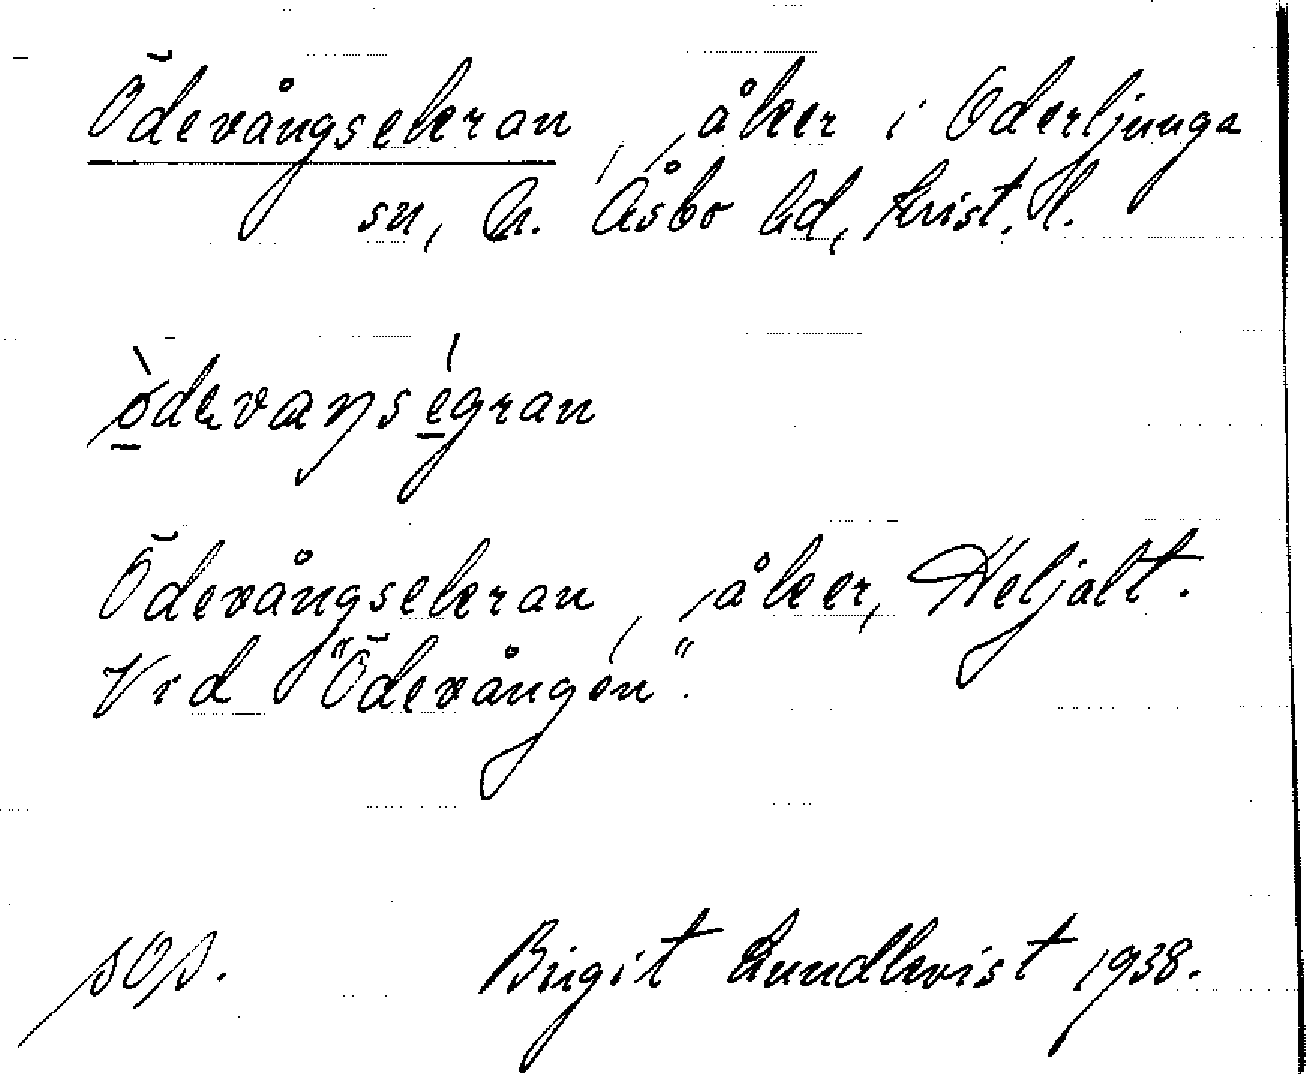 Ödevångsekran, åker i Oderljunga
sn, N. Åsbo hd, Krist. l.
ø̱̀devaŋsé̱gran
Ödevångsekran, åker, Heljalt.
Vid "Ödevången".
sOs. Birgit Lundkvist 1938.